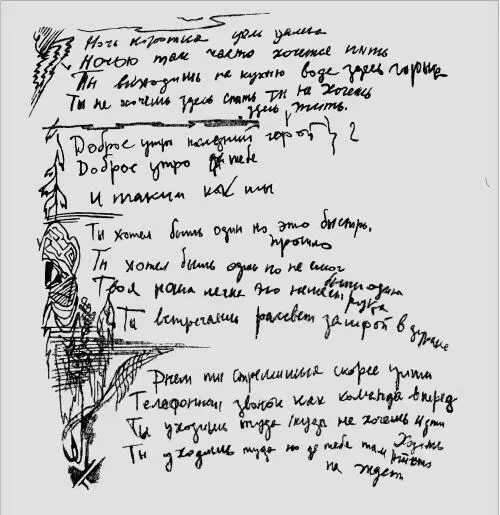 Ночь коротка цель далека
Ночью так часто хочется пить
Ты выходишь на кухню вода здесь горька
Ты не хочешь здесь спать ты не хочешь
здесь жить.
Доброе утро последний герой } 2
Доброе утро тебе
И таким как ты
Ты хотел быть один но это быстро
прошло
Ты хотел быть один но не смог
быть один
Твоя ноша легка это немеет рука
Ты встречаешь рассвет за игрой в дурака
Днем ты стремишься скорее уйти
Телефонный звонок как команда вперед
Ты уходишь туда куда не хочешь идти
Ты уходишь туда но тебя там никто
не ждет